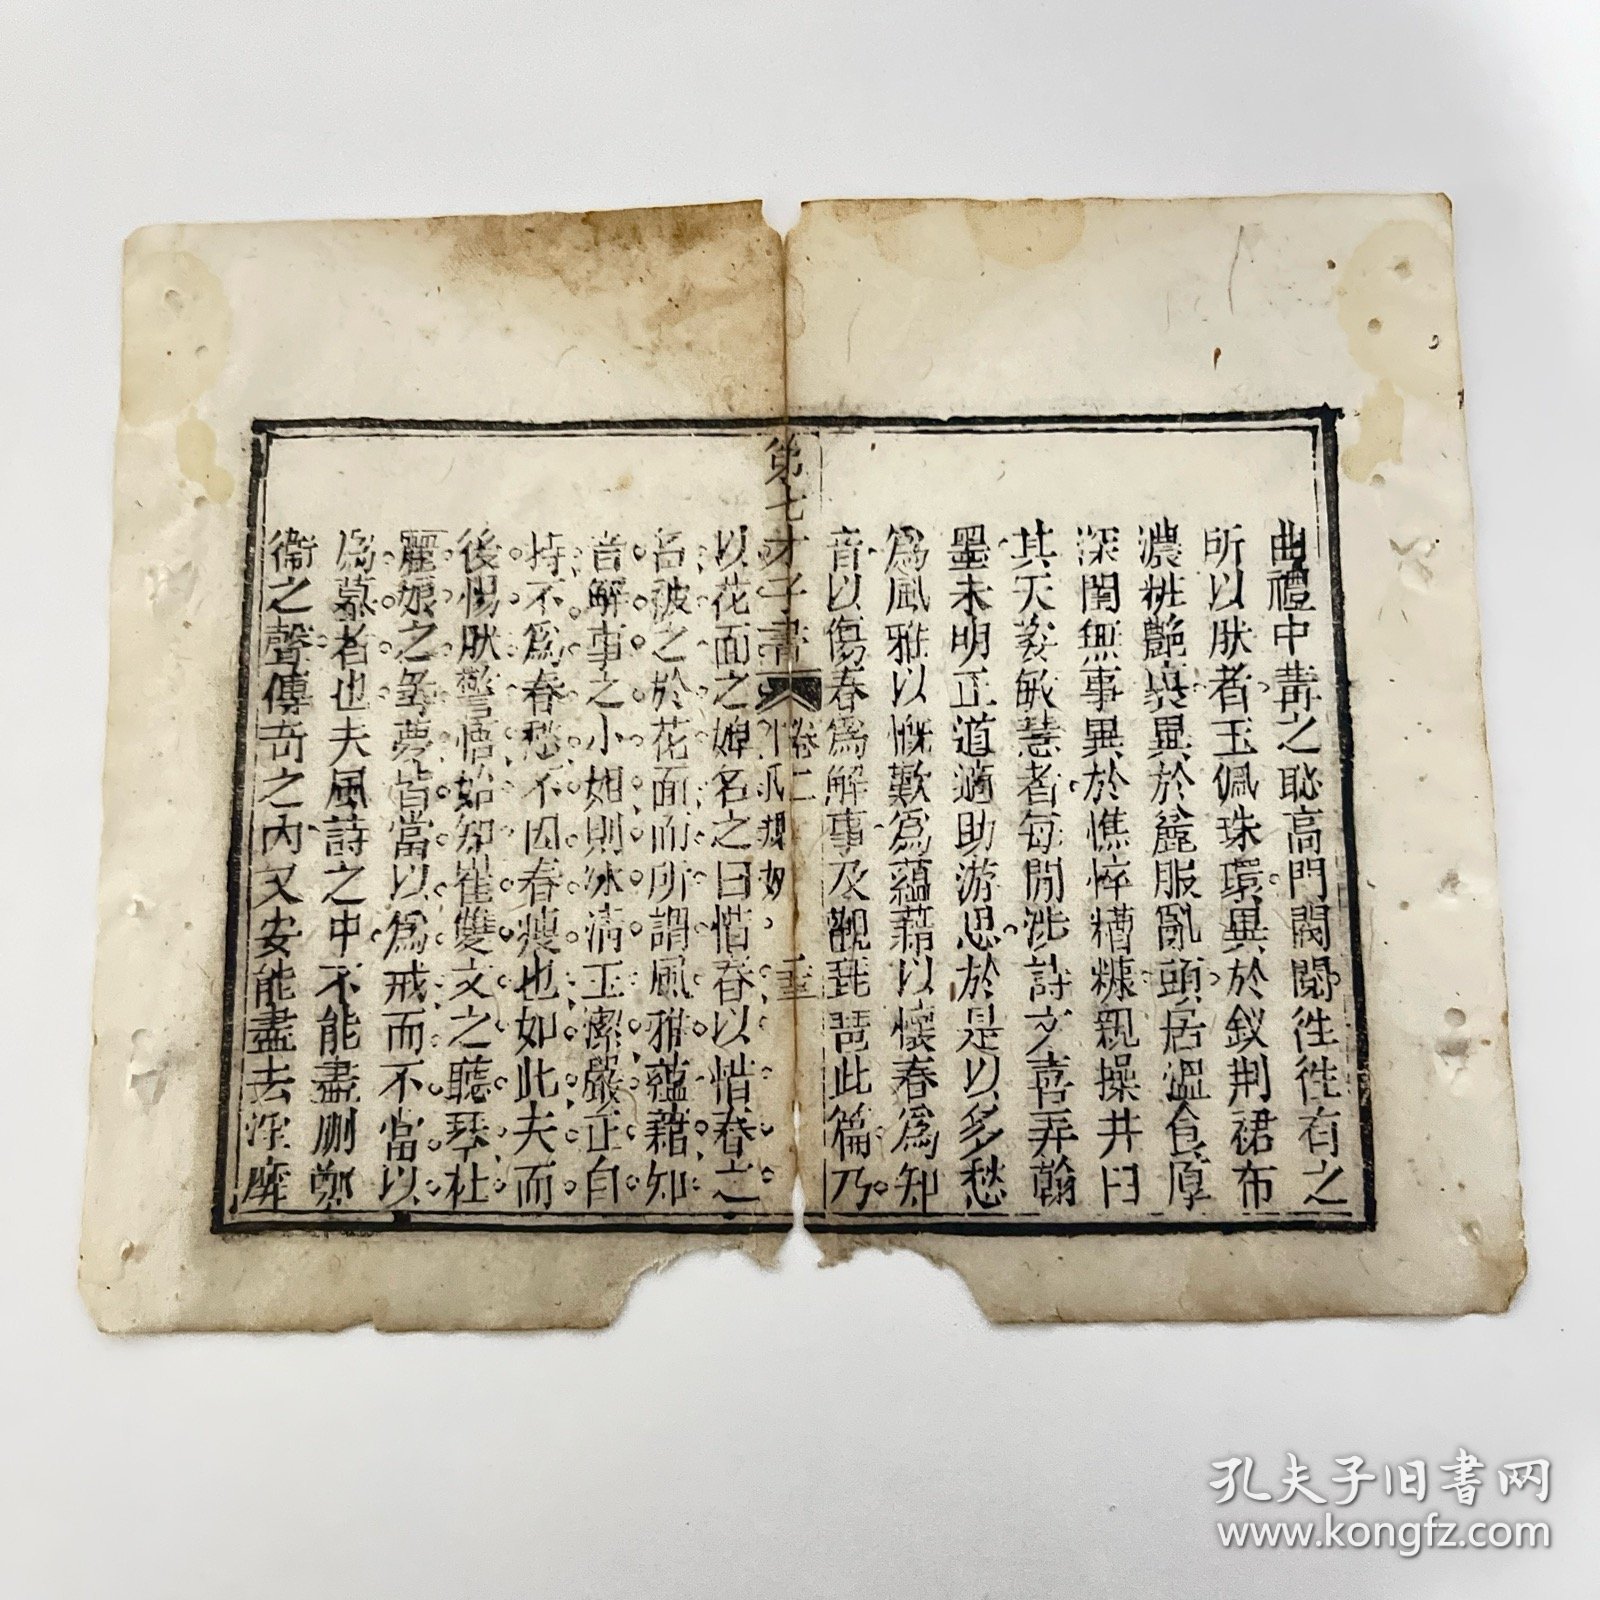 曲禮中冓之恥高門閥閱徃徃有之
所以肰者玉佩珠環異於釵荆裙布
濃粧艷裹異於麄服亂頭居溫食厚
深閨無事異於憔悴糟糠親操井臼
其天姿敏慧者每閒涉詩文喜弄翰
墨未明正道適助游思於是以多愁
爲風雅以慨歎爲蘊藉以懷春爲知
音以傷春爲解事及觀琵琶此篇乃
第七才子書 卷二
以花面之婢名之曰惜春以惜春之
名被之於花面而所謂風雅蘊藉知
音解事之小姐則冰清玉潔嚴正自
持不爲春愁不因春瘦也如此夫而
後惕肰警悟始知崔雙文之聽琴杜
麗娘之尋夢皆當以爲戒而不當以
爲慕者也夫風詩之中不能盡刪鄭
衞之聲傳奇之內又安能盡去淫靡
孔夫子旧书网
www.kongfz.com